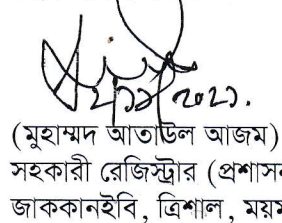 (মুহাম্মদ আতাউল আজম)
সহকারী রেজিস্ট্রার (প্রশাসন
জাককানইবি, ত্রিশাল, ময়ম